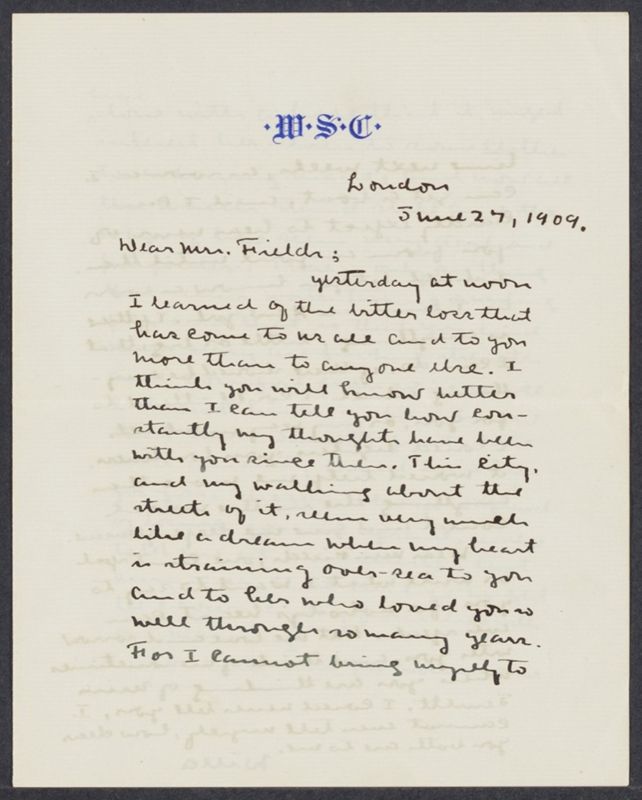 ·W·S·C·
London
June 27, 1909.
Dear Mrs. Fields;
yesterday at noon
I learned of the bitter loss that
has come to us all and to you
more than to anyone else. I
think you will know better
than I can tell you how con-
stantly my thoughts have been
with you since then. This city,
and my walking about the
streets of it, seem very much
like a dream when my heart
is straining over-sea to you
and to her who loved you so
well through so many years.
For I cannot bring myself to